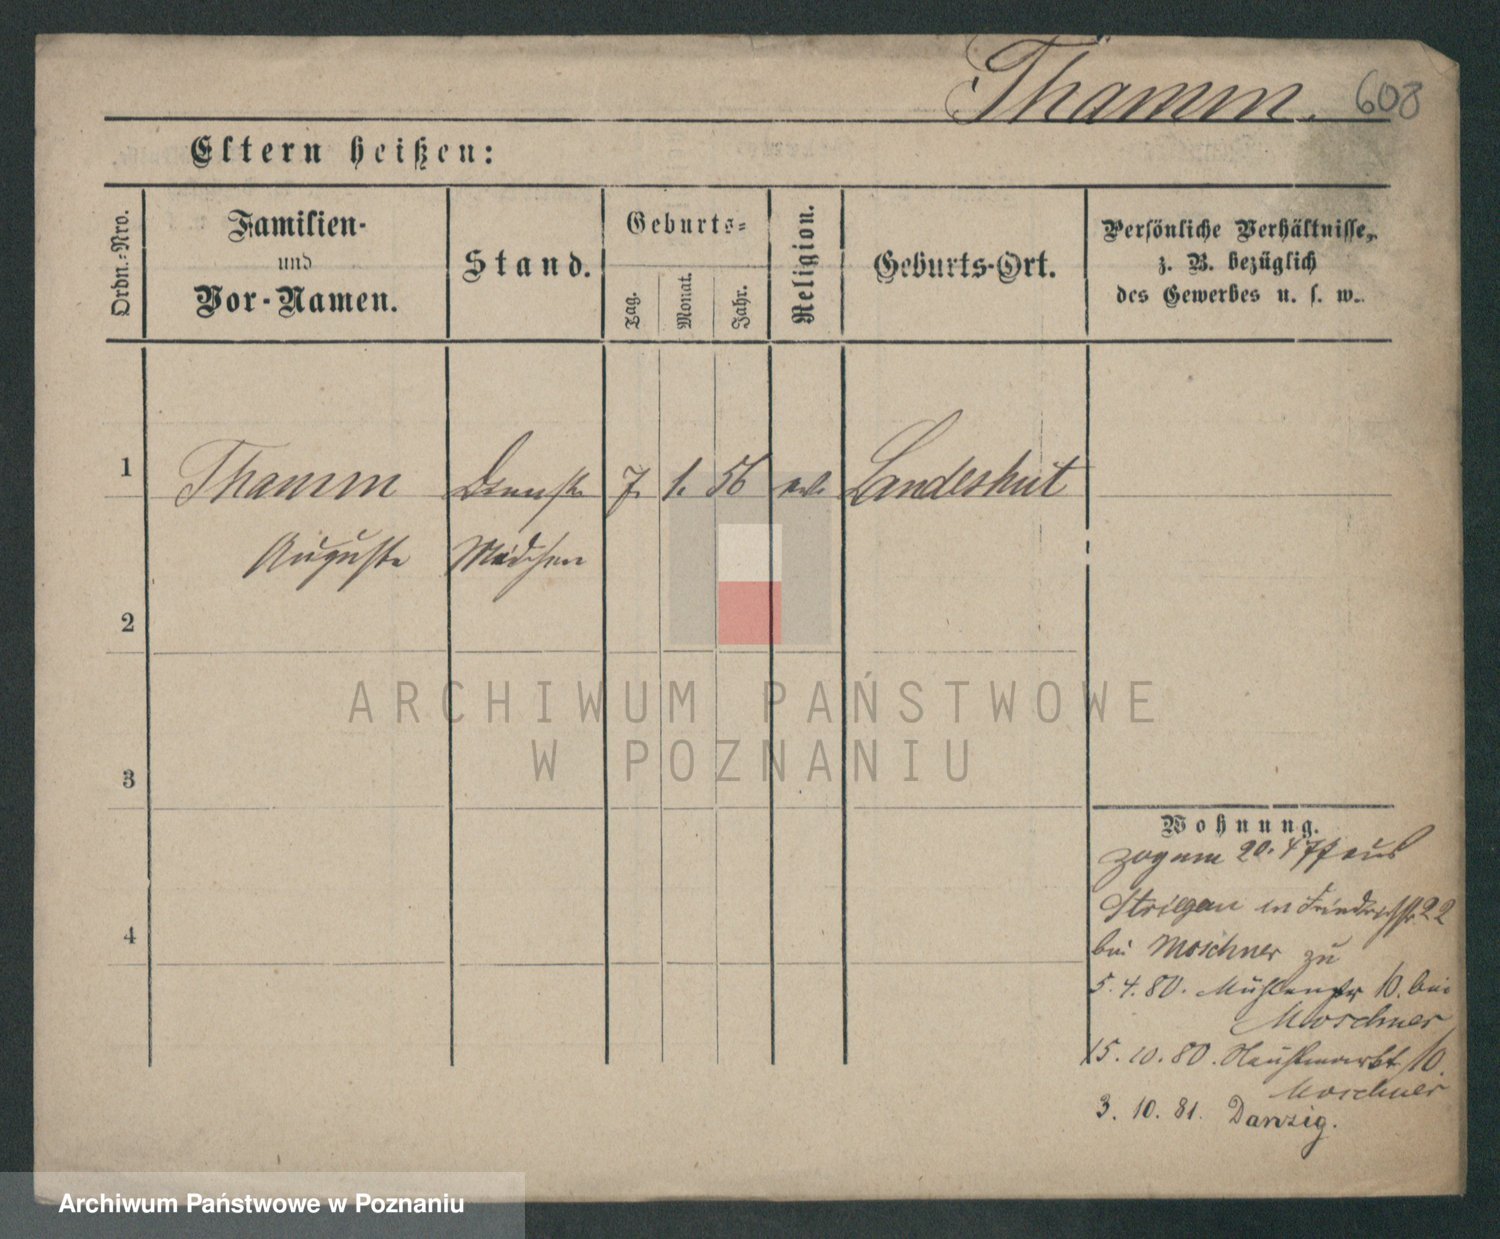 Thamm. 608
Eltern heißen:
Ordn.-Nro.
Familien-
und
Vor-Namen.
Stand.
Geburts-
Tag.
Monat.
Jahr.
Religion.
Geburts-Ort.
Persönliche Verhältnisse,
z. B. bezüglich
des Gewerbes u. s. w.
1 Thamm Dienst 7. 1. 56 ev. Landeshut
Auguste Mädchen
2
ARCHIWUM PAŃSTWOWE
W POZNANIU
3
Wohnung.
zog am 20. 4 77 aus
Striegau in Friedrichstr. 22
4
bei Moschner zu
5. 4. 80. Mühlenstr 10. bei
Moschner
15. 10. 80. 10.
Moschner
3. 10. 81. Danzig.
Archiwum Państwowe w Poznaniu